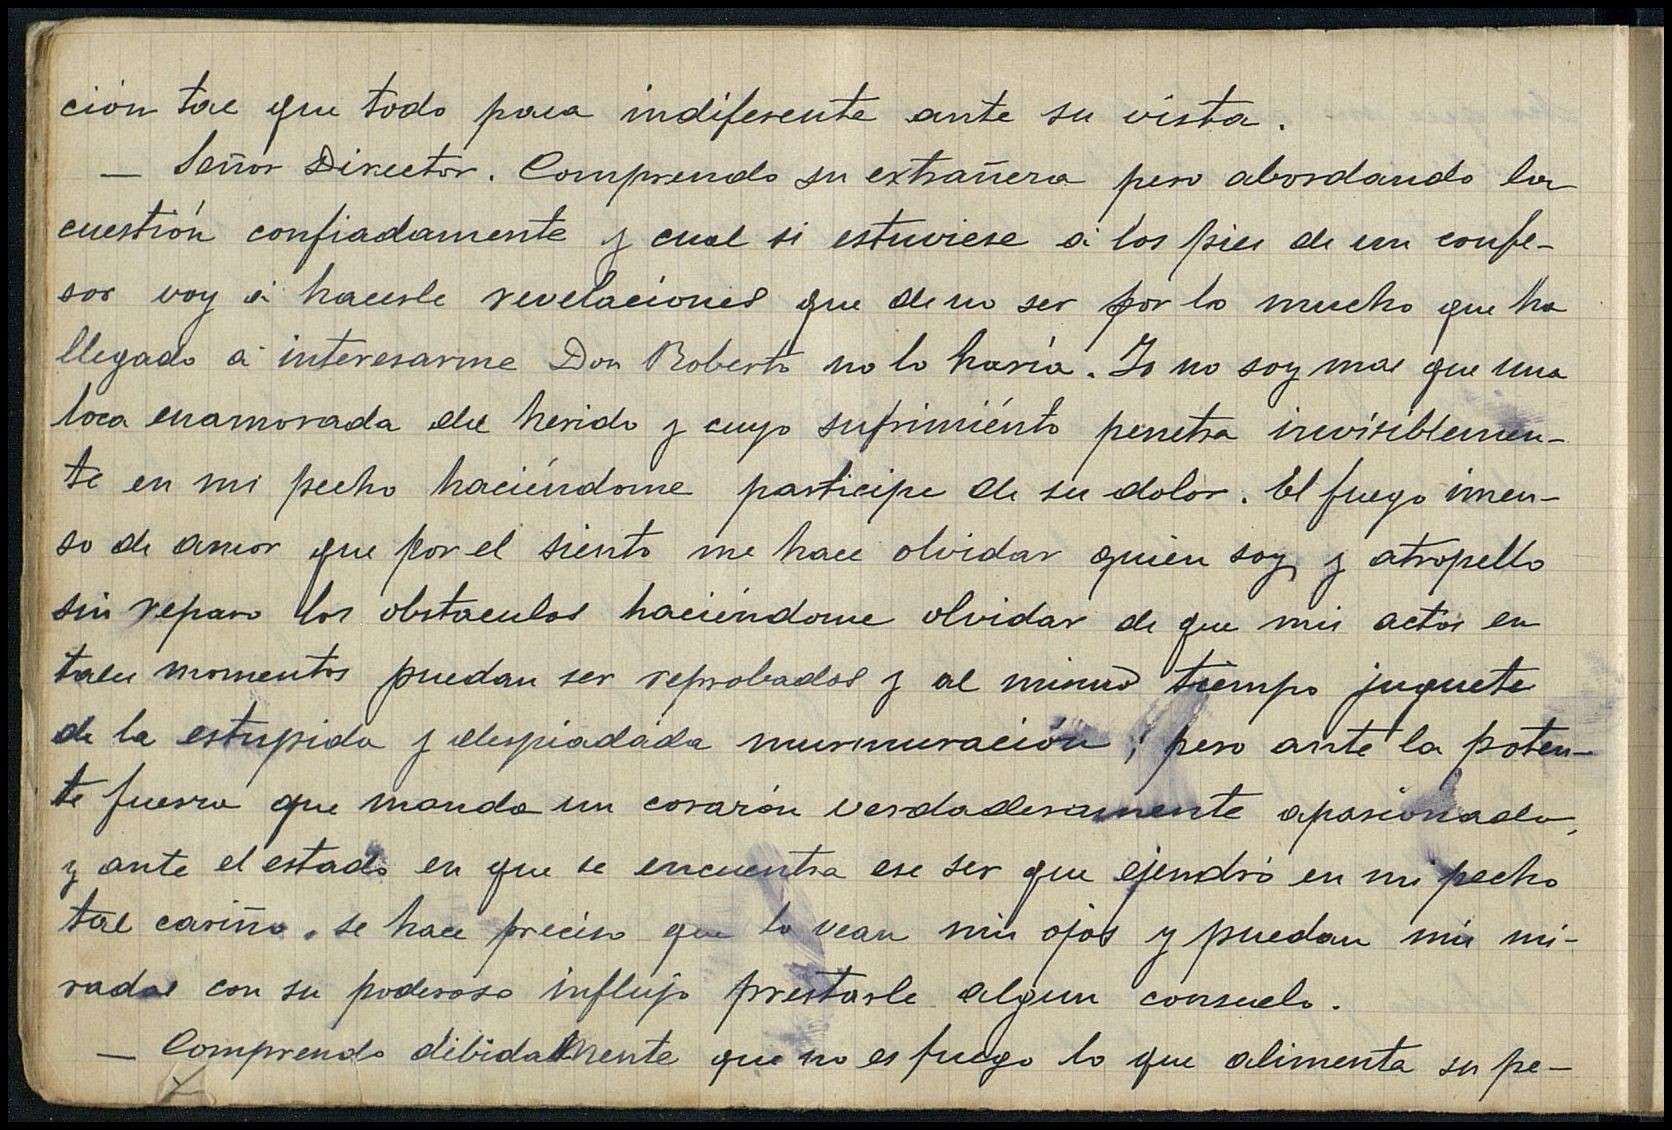 ción tal que todo pasa indiferente ante su vista.
— Señor Director. Comprendo su extrañeza pero abordando la
cuestión confiadamente y cual si estuviese á los pies de un confe-
sor voy á hacerle revelaciones que de no ser por lo mucho que ha
llegado á interesarme Don Roberto no lo haría. Yo no soy mas que una
loca enamorada del herido y cuyo sufrimiénto penetra invisiblemen-
te en mi pecho haciéndome participe de su dolor. El fuego imen-
so de amor que por el siento me hace olvidar quien soy y atropello
sin reparo los obstaculos haciéndome olvidar de que mis actos en
tales momentos puedan ser reprobados y al mismo tiempo juguete
de la estupida y despiadada murmuración; pero ante la poten-
te fuerza que manda un corazón verdaderamente apasionado,
y ante el estado en que se encuentra ese ser que ejendró en mi pecho
tal cariño, se hace preciso que lo vean mis ojos y puedan mis mi-
radas con su poderoso influjo prestarle algun consuelo.
— Comprendo dibidamente que no es fuego lo que alimenta su pe-